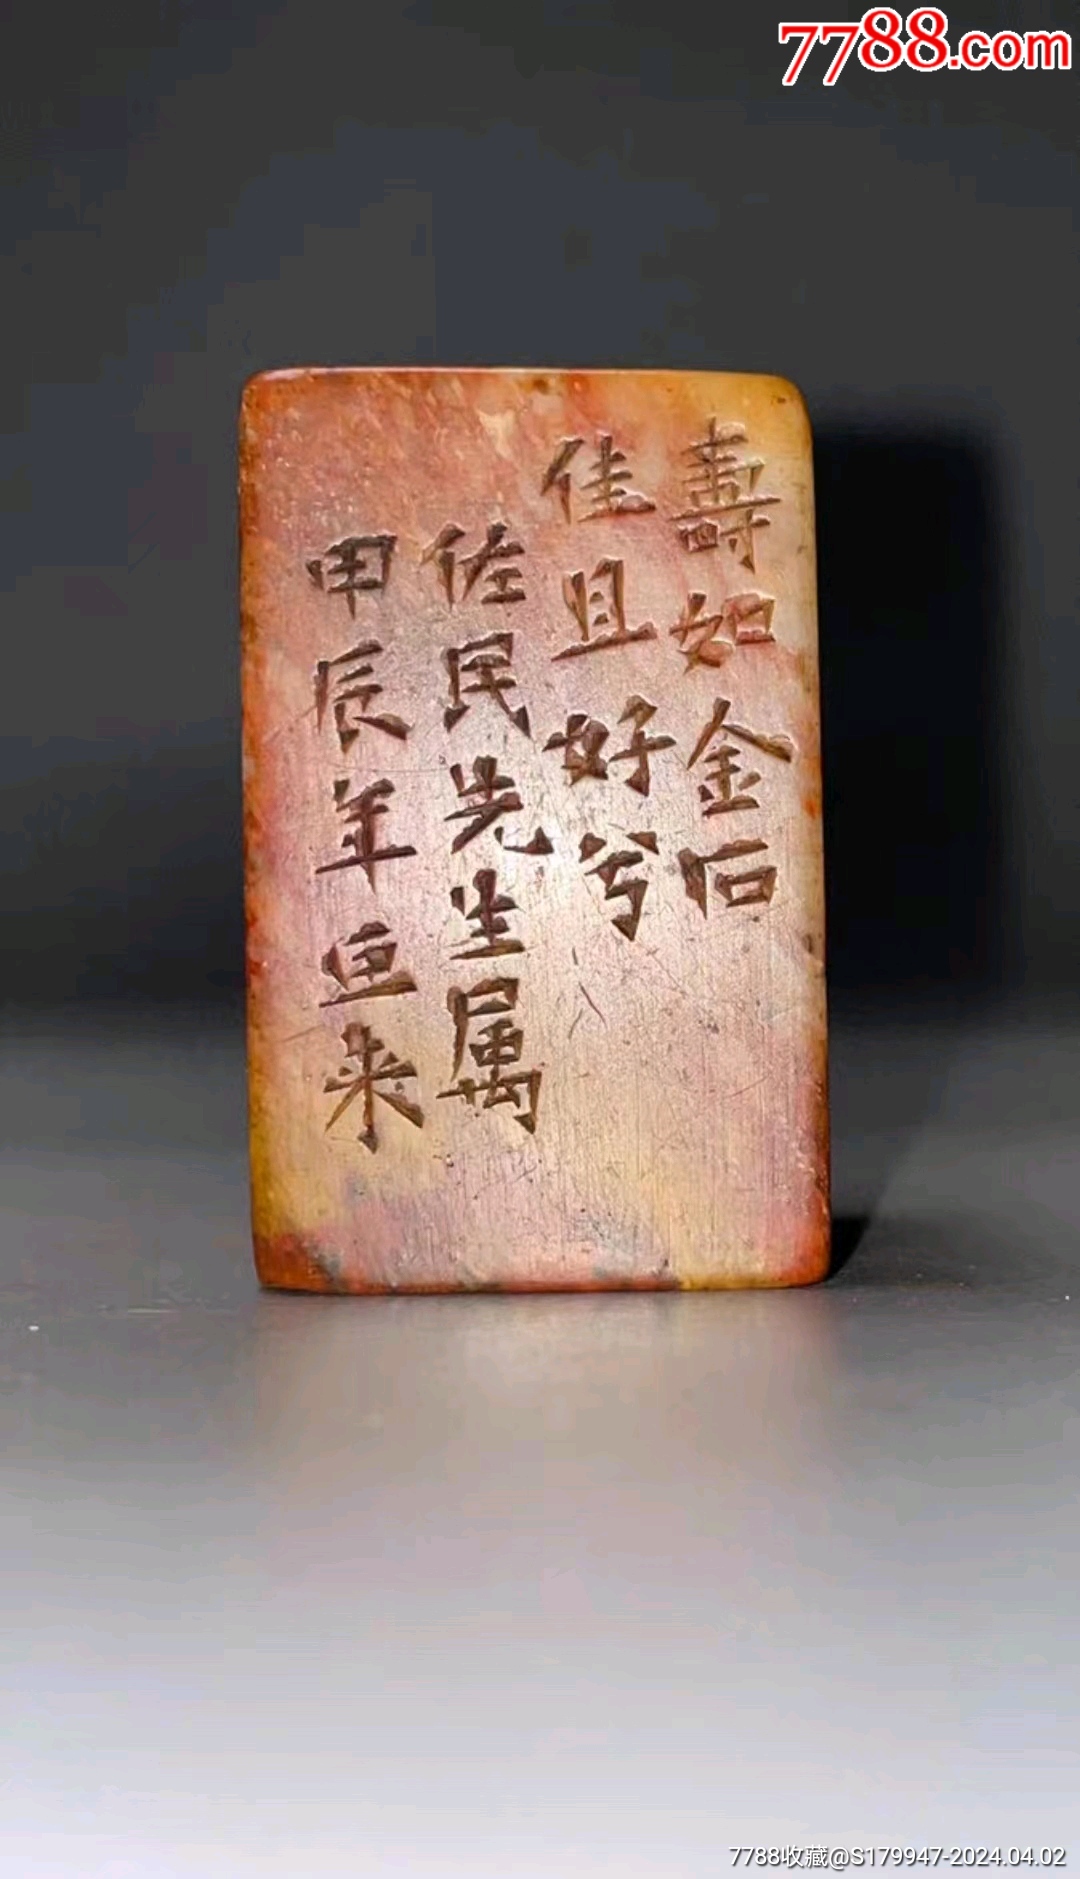 7788.com
壽如金石
佳且好兮
佐民先生属
甲辰年亚来
7788收藏@S179947-2024.04.02